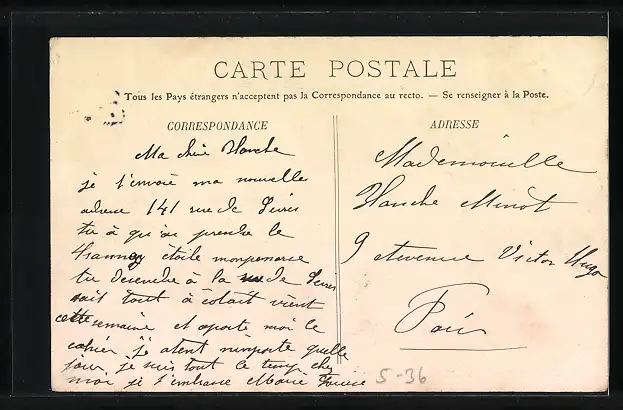 CARTE POSTALE
Tous les Pays étrangers n'acceptent pas la Correspondance au recto. — Se renseigner à la Poste.
CORRESPONDANCE
Ma chère Blanche
je t'envoie ma nouvelle
adresse 141 rue de Sèvres
tu à qu'au prendre le
étoile monparnasse
tu desendre à la rue de Sevres
sait tout à cotait vient
cette semaine et aporte moi le
cahier je atent ninporte quelle
jour je suis tout le temp chez
moi je t'embrasse Marie
ADRESSE
Mademoiselle
Blanche Minot
9 Avenue Victor Hugo
Paris
5-36